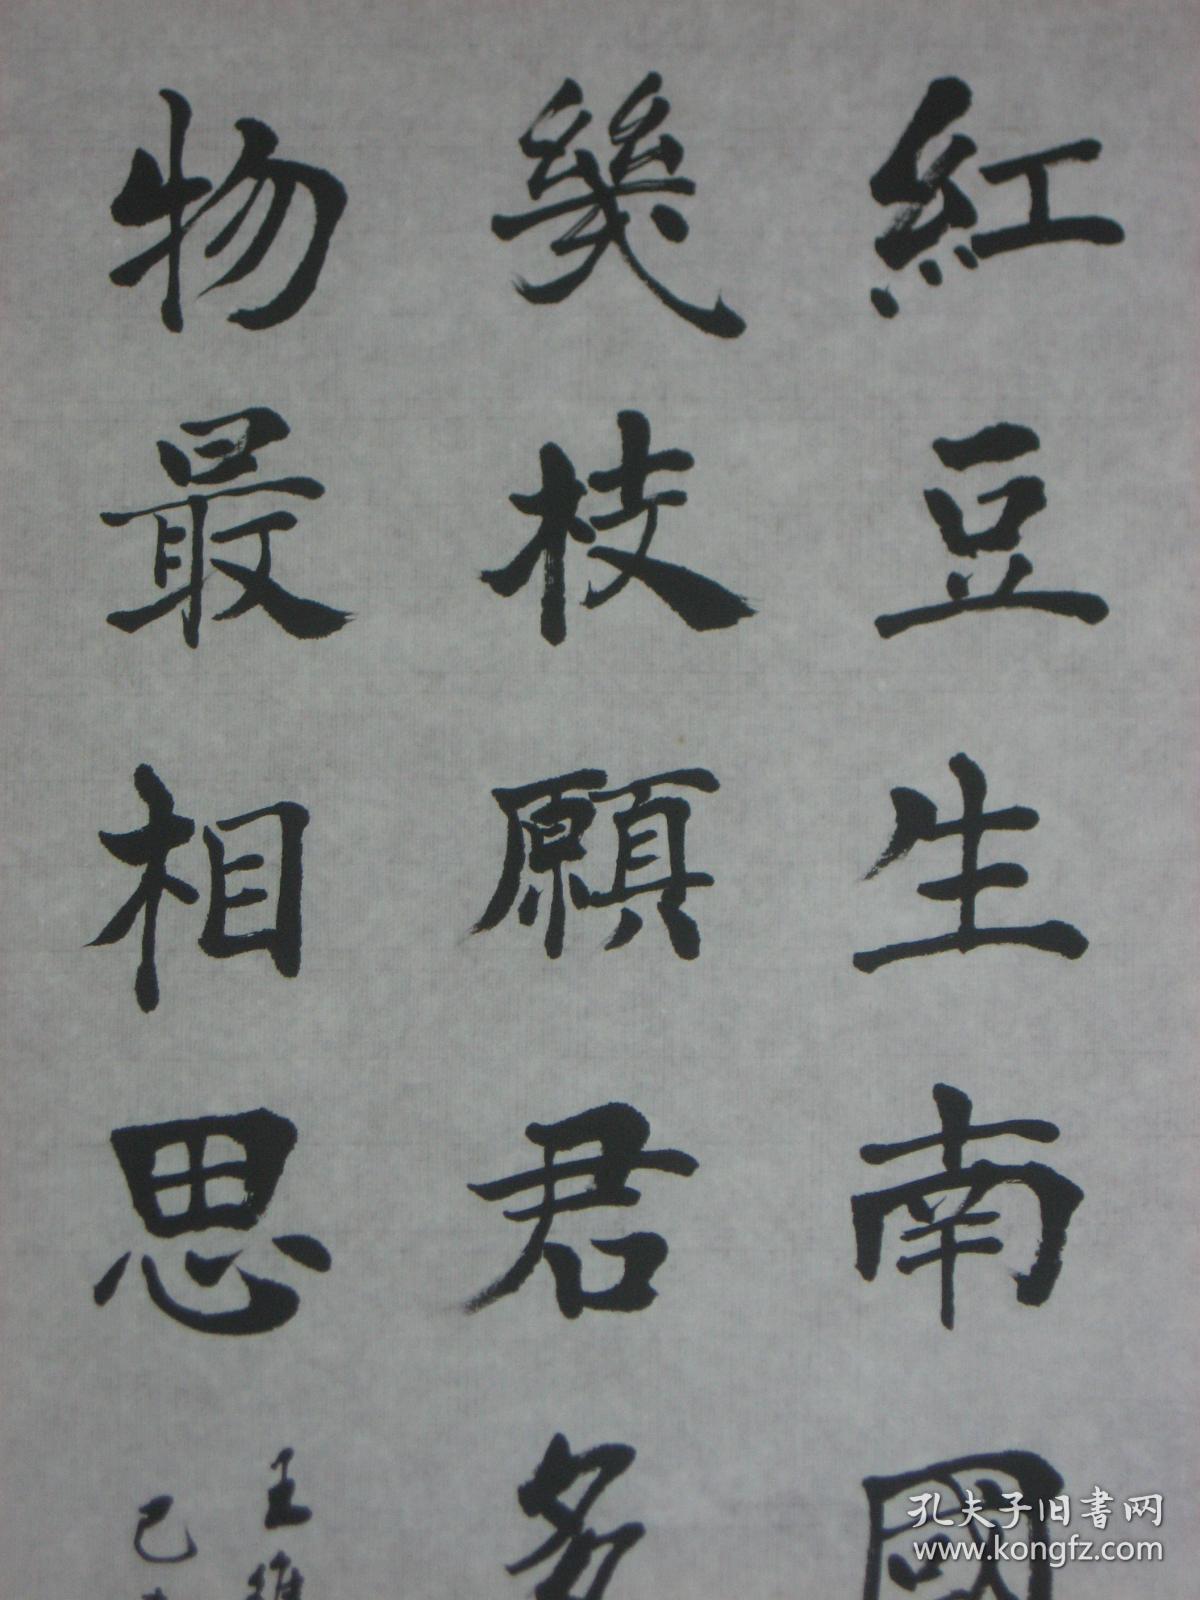 紅豆生南國
幾枝願君多
物最相思
王維
己
孔夫子旧书网
www.kongfz.com